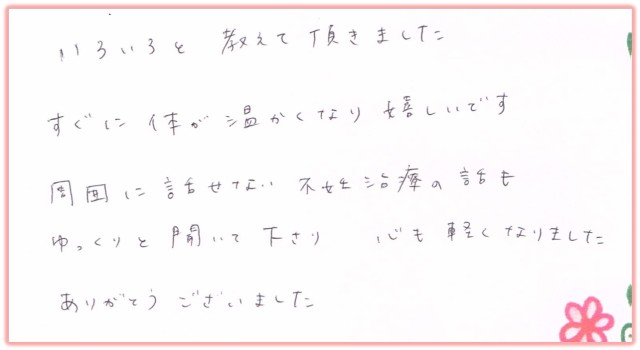 いろいろと 教えて頂きました
すぐに体が温かくなり嬉しいです
周囲に話せない不妊治療の話も
ゆっくりと聞いて下さり 心も軽くなりました
ありがとうございました